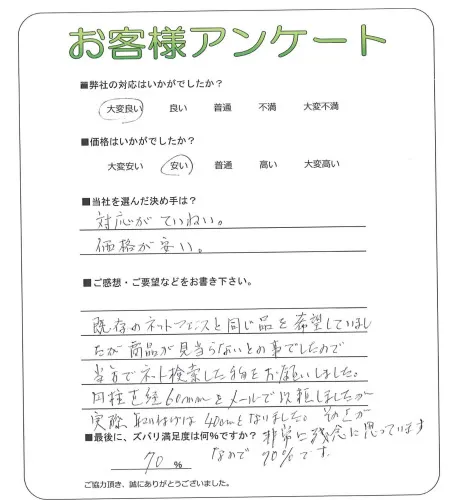 お客様アンケート
■弊社の対応はいかがでしたか？
大変良い 良い 普通 不満 大変不満
■価格はいかがでしたか？
大変安い 安い 普通 高い 大変高い
■当社を選んだ決め手は？
対応がていねい。
価格が安い。
■ご感想・ご要望などをお書き下さい。
既存のネットフェンスと同じ品を希望していまし
たが商品が見当らないとの事でしたので
当方でネット検索した物をお願いしました。
円柱直経60mmをメールで依頼しましたが
実際取り付けは40mmとなりました。その点が
非常に残念に思っています
■最後に、ズバリ満足度は何％ですか？
70 %
なので 70%です。
ご協力頂き、誠にありがとうございました。